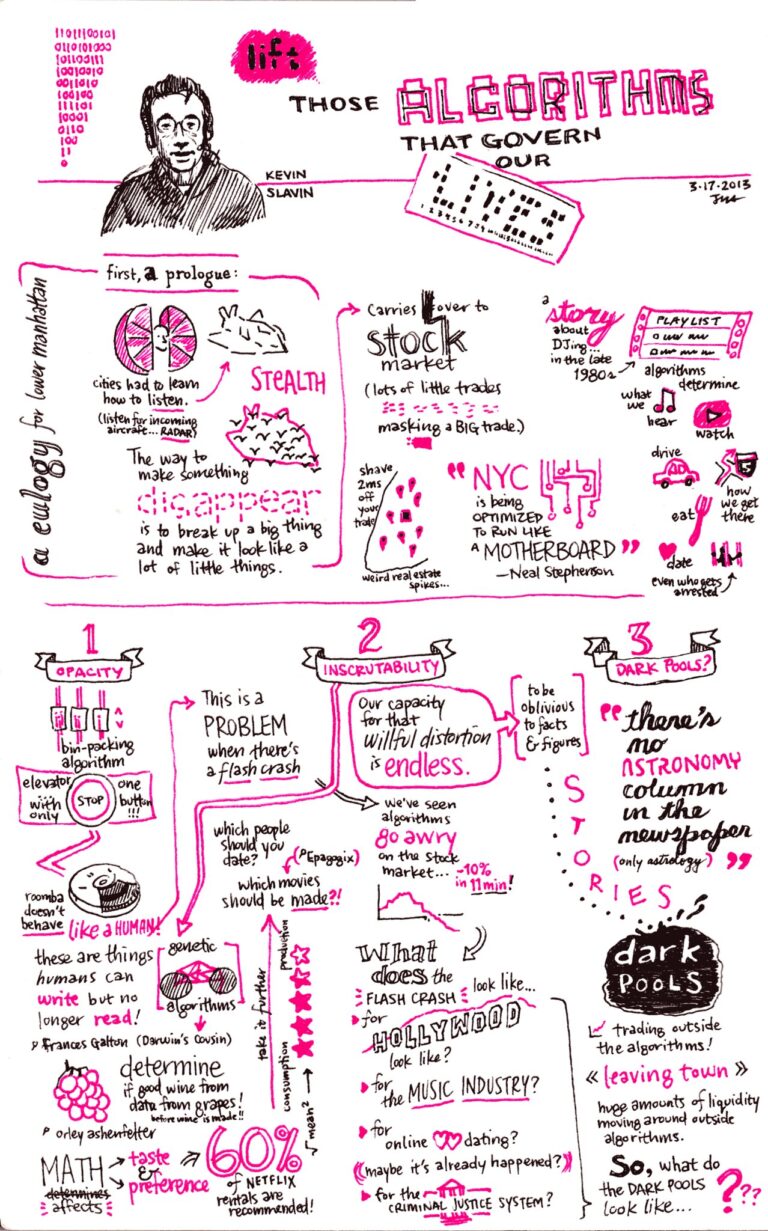 11011001001
01010100010
0110110011
1001100010
010010110
100101100
10010010
0110100
0110100
010110
01100
0110
lift
THOSE ALGORITHMS
THAT GOVERN
OUR
LIVES
KEVIN
SLAVIN
3-17-2013
a eulogy for lower manhattan
first, a prologue:
cities had to learn
how to listen.
(listen for incoming
aircraft... RADAR)
STEALTH
The way to
make something
disappear
is to break up a big thing
and make it look like a
lot of little things.
Carries over to
stock
market
(lots of little trades
masking a BIG trade.)
shave
2ms
off
your
trade
weird real estate
spikes...
"NYC
is being
OPTIMIZED
TO RUN LIKE
A MOTHERBOARD"
—Neal Stephenson
a
story
about
DJing...
in the late
1980s
PLAYLIST
algorithms
determine
what
we
hear
watch
drive
AD
how
we get
there
eat
date
even who gets
arrested
1
OPACITY
bin-packing
algorithm
elevator
with
only
STOP
one
button
!!!
roomba
doesn't
behave like a HUMAN!
these are things
humans can
write but no
longer read!
genetic
algorithms
Frances Galton (Darwin's Cousin)
determine
if good wine from
data from grapes!
before wine is made!!
orley ashenfelter
MATH
determines
affects
taste
&
preference
60%
of NETFLIX
rentals are
recommended!
This is a
PROBLEM
when there's
a flash crash
2
INSCRUTABILITY
Our capacity
for that
willful distortion
is endless.
to be
oblivious
to facts
& figures
which people
should you
date?
(Epagogix)
which movies
should be made?!
take it further
consumption
production
√mean²
we've seen
algorithms
go awry
on the stock
market...
-10%
in 11min!
What
does the
FLASH CRASH look like...
for
HOLLYWOOD
look like?
for
the MUSIC INDUSTRY?
for
online dating?
(maybe it's already happened?)
for the
CRIMINAL JUSTICE SYSTEM?
3
DARK POOLS?
"there's
no
ASTRONOMY
column
in the
newspaper
(only astrology)"
STORIES
dark
POOLS
trading outside
the algorithms!
«leaving town»
huge amounts of liquidity
moving around outside
algorithms.
So, what do
the DARK POOLS
look like...
????